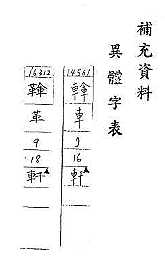 補充資料
異體字表
14561
車
9
16
軒
16312
革
9
18
軒